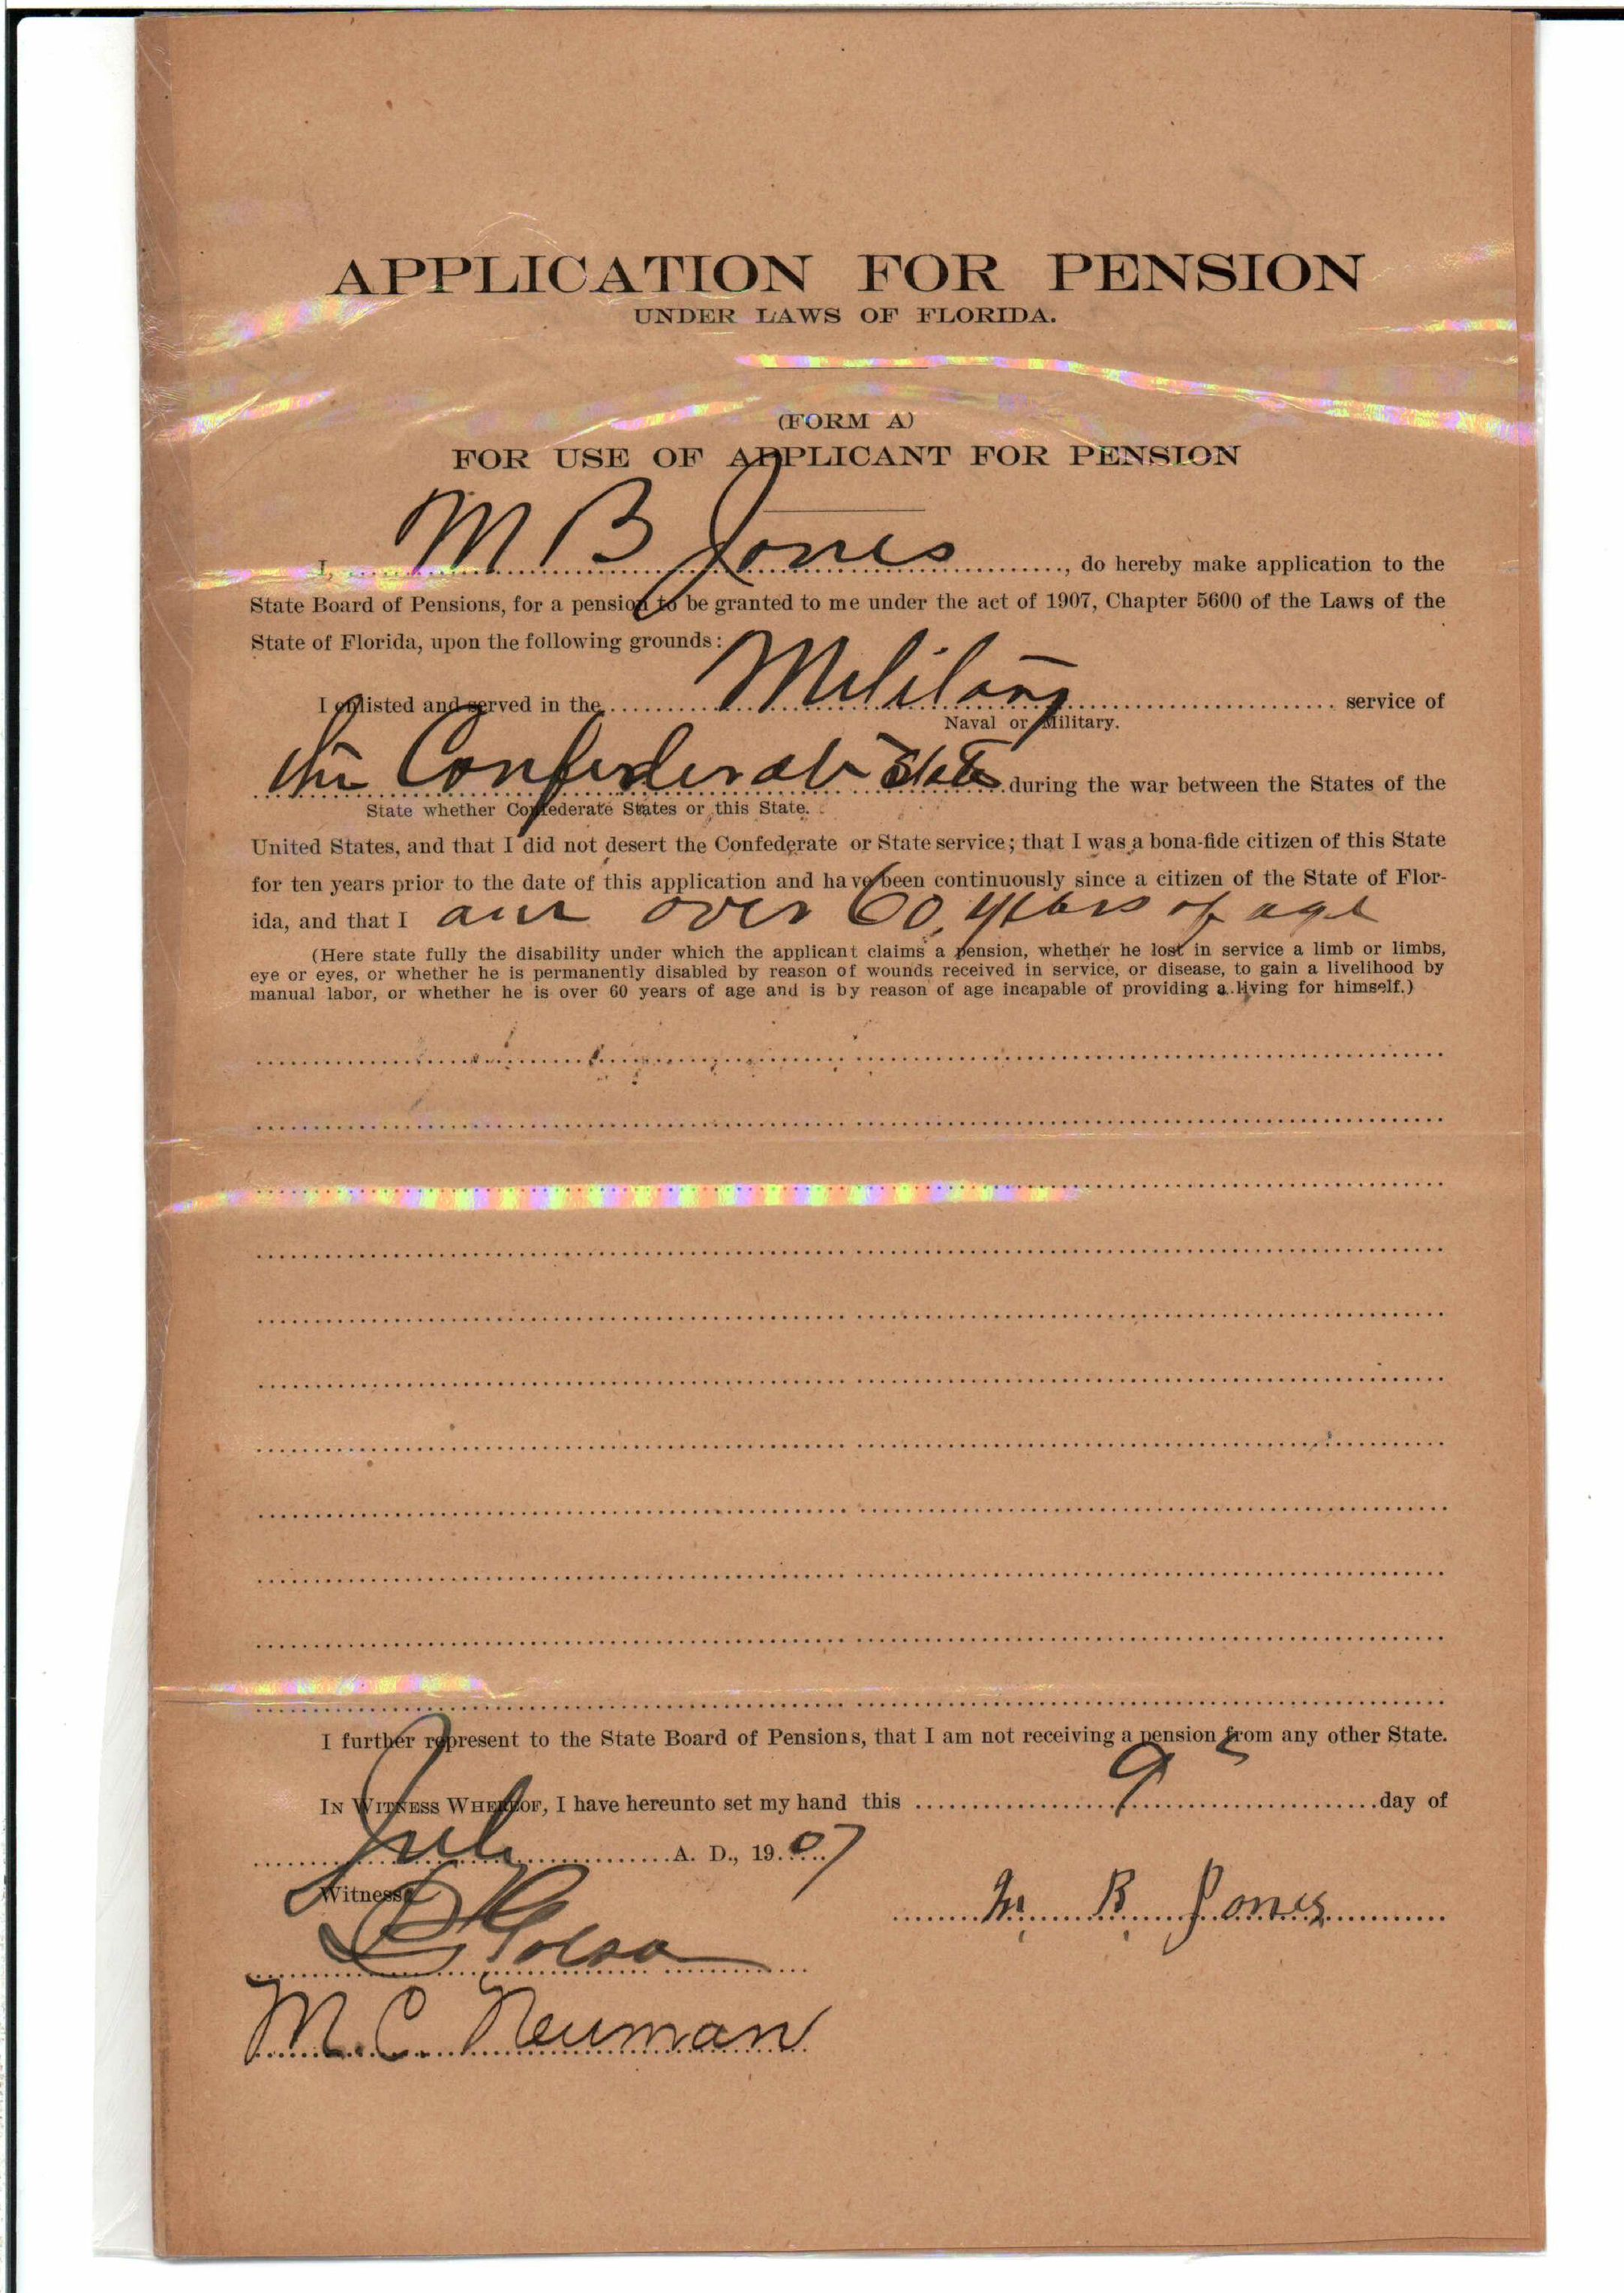 APPLICATION FOR PENSION
UNDER LAWS OF FLORIDA.
(FORM A)
FOR USE OF APPLICANT FOR PENSION
I, M B Jones, do hereby make application to the
State Board of Pensions, for a pension to be granted to me under the act of 1907, Chapter 5600 of the Laws of the
State of Florida, upon the following grounds:
I enlisted and served in the Military service of
Naval or Military.
the Confederate States during the war between the States of the
State whether Confederate States or this State.
United States, and that I did not desert the Confederate or State service; that I was a bona-fide citizen of this State
for ten years prior to the date of this application and have been continuously since a citizen of the State of Flor-
ida, and that I am over 60 years of age
(Here state fully the disability under which the applicant claims a pension, whether he lost in service a limb or limbs,
eye or eyes, or whether he is permanently disabled by reason of wounds received in service, or disease, to gain a livelihood by
manual labor, or whether he is over 60 years of age and is by reason of age incapable of providing a living for himself.)
I further represent to the State Board of Pensions, that I am not receiving a pension from any other State.
IN WITNESS WHEREOF, I have hereunto set my hand this 9 day of
July A. D., 1907
Witness
M. B. Jones
M.C. Neuman